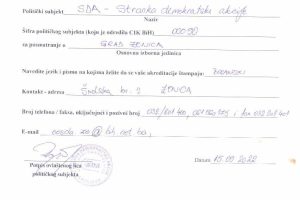 Politički subjekt SDA - Stranka demokratske akcije
Naziv
Šifra političkog subjekta (koju je odredila CIK BiH) 00090
za posmatranje u GRAD ZENICA
Osnovna izborna jedinica
Navedite jezik i pismo na kojima želite da se vaše akreditacije štampaju: BOSANSKI
Kontakt - adresa Školska br. 2 ZENICA
Broj telefona / faksa, uključujući i pozivni broj 032/201 400,
E-mail
Potpis ovlaštenog lica
političkog subjekta
Datum 15.09.2022